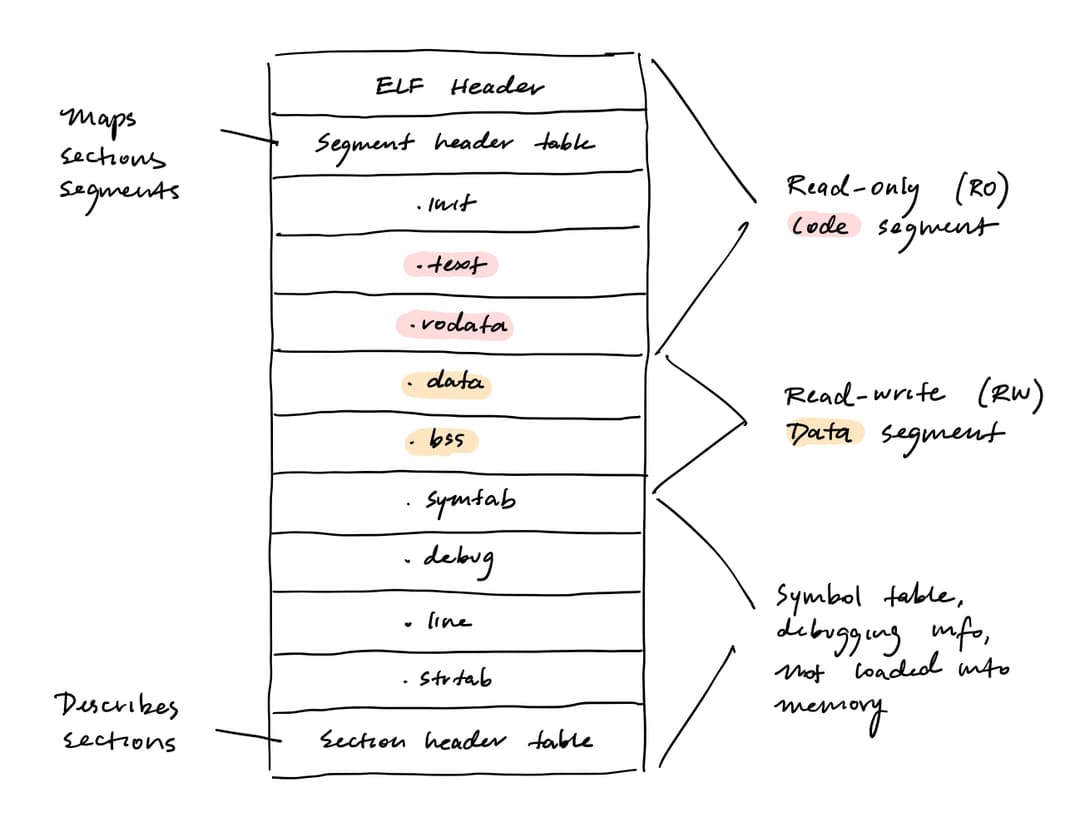 ELF Header
Maps
sections
segments
Segment header table
.init
.text
.rodata
.data
.bss
.symtab
.debug
.line
.strtab
Describes
sections
Section header table
Read-only (RO)
Code segment
Read-write (RW)
Data segment
Symbol table,
debugging info,
not loaded into
memory